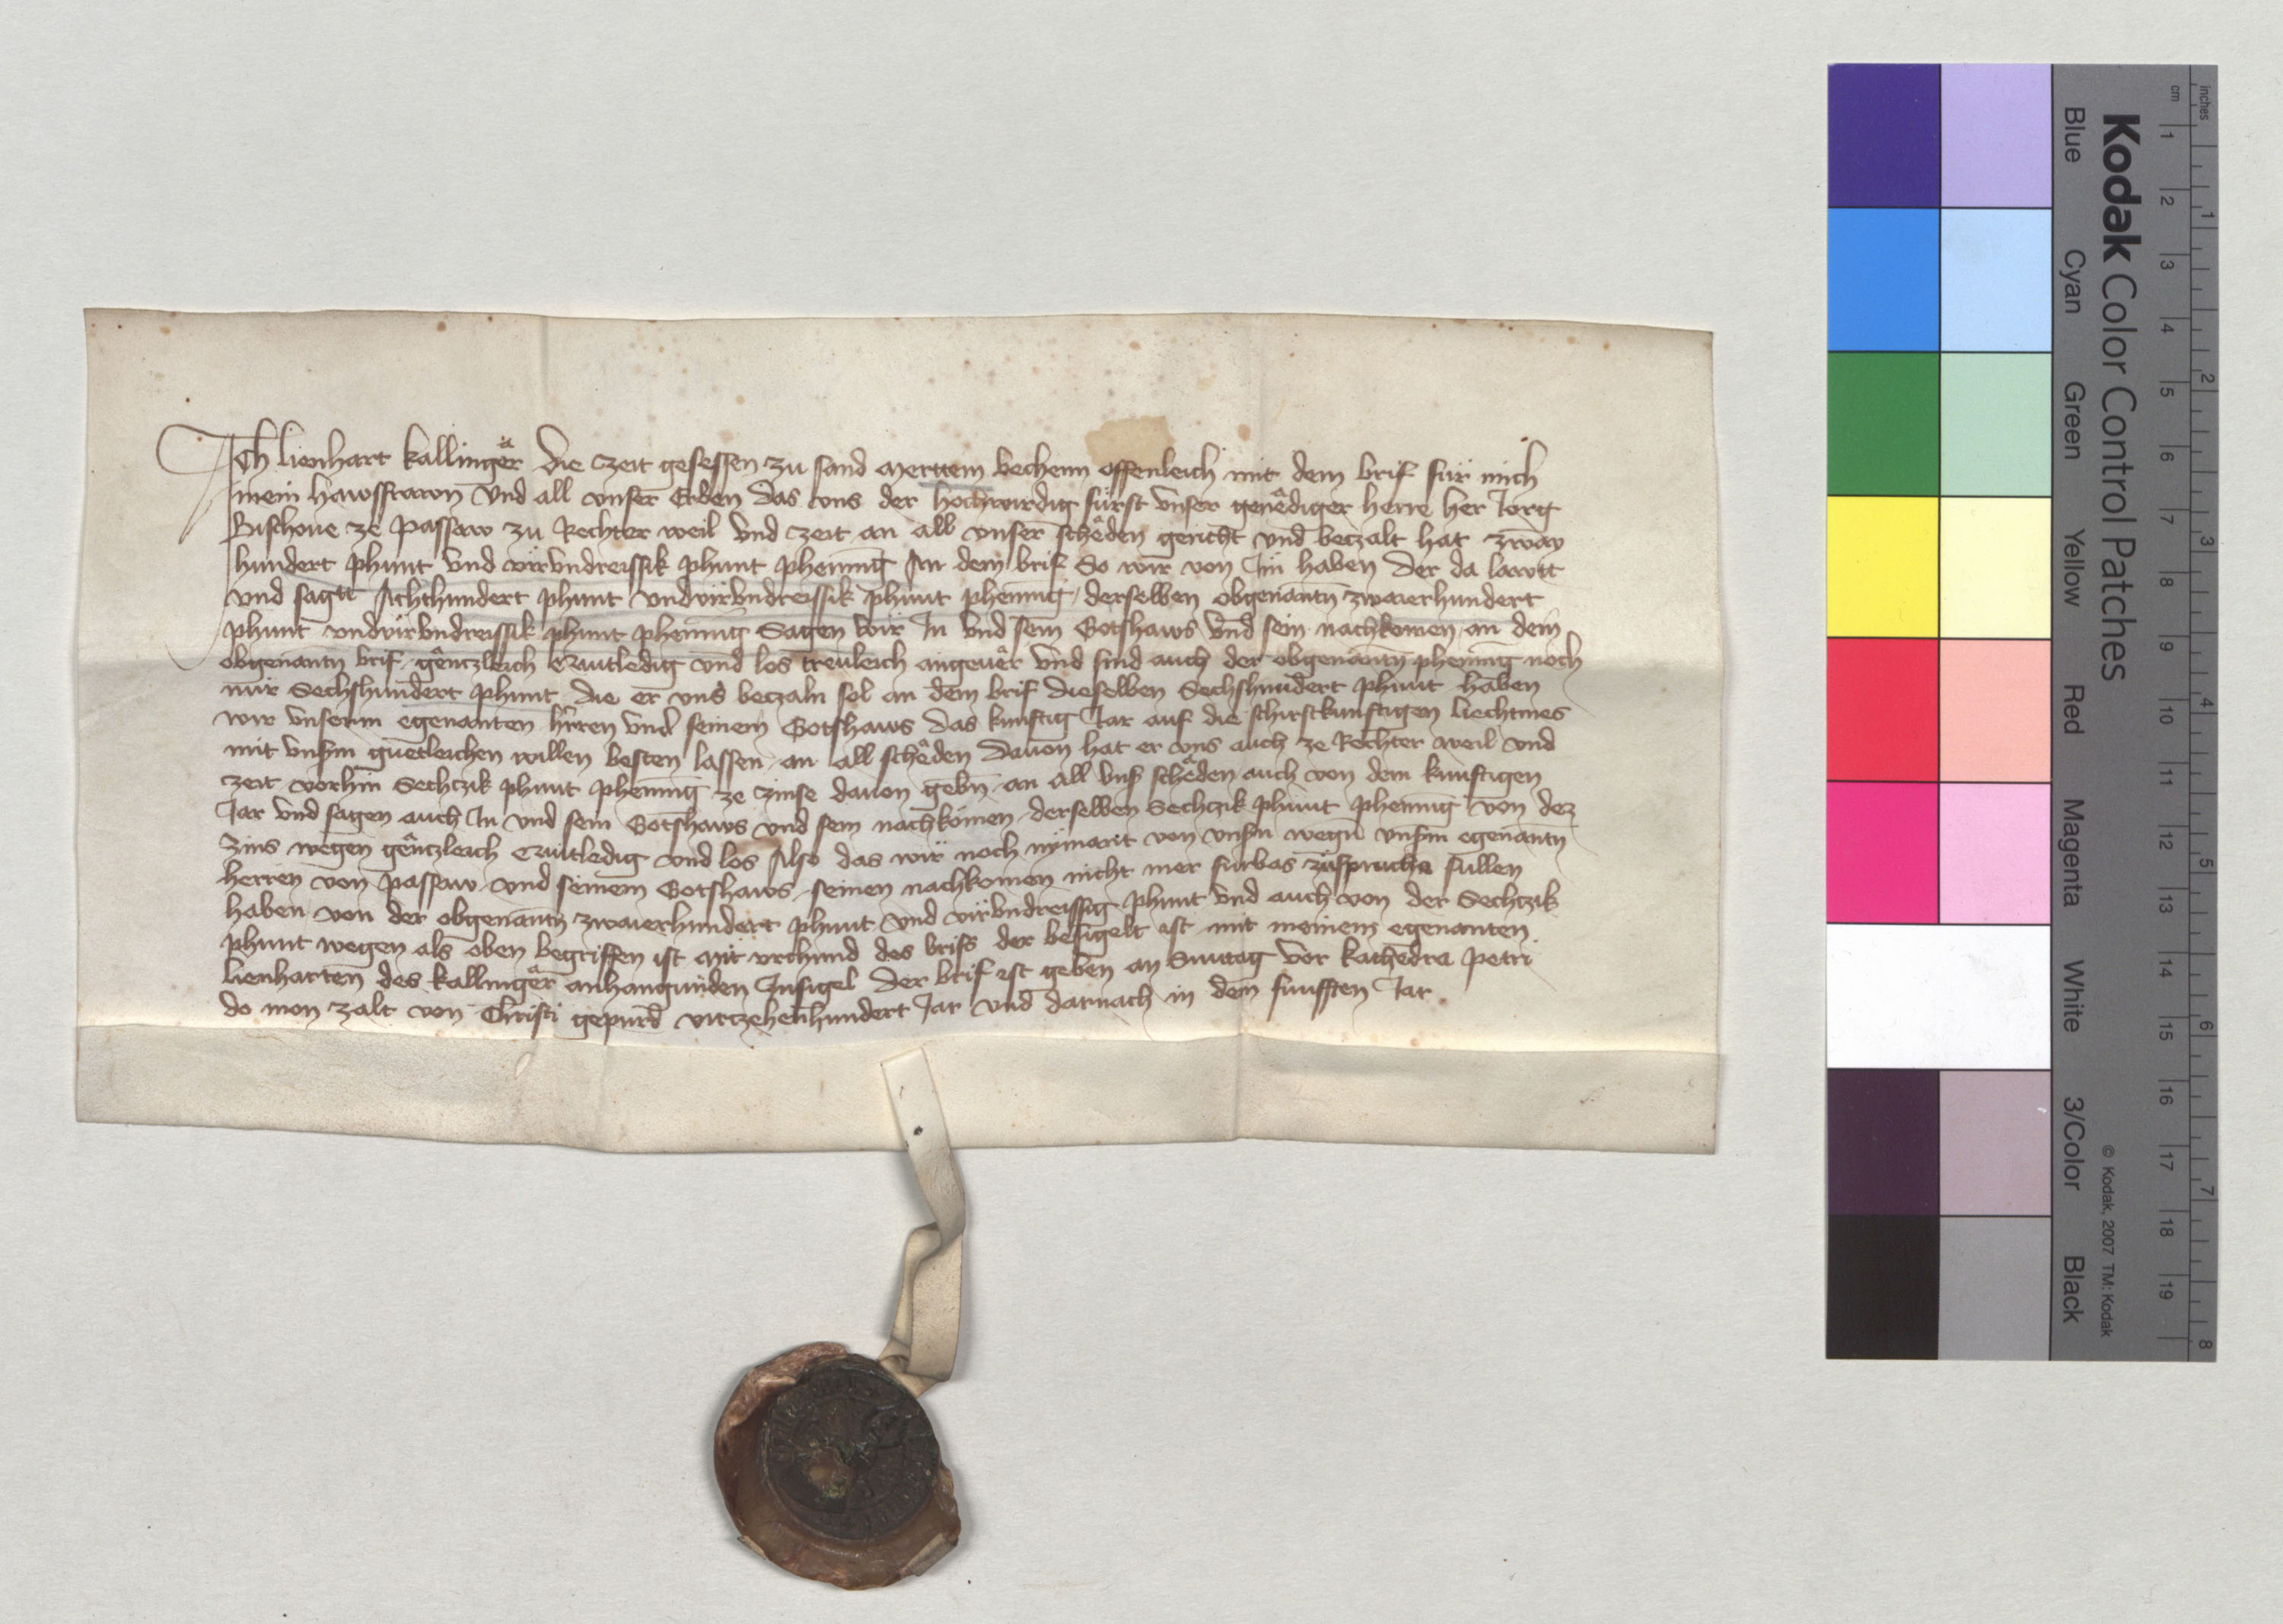 Ich Lienhart kallingër die czeit gesessen zu sand Merttein bechenn offenleich mit dem brif für mich
mein hawsfrawn vnd all vnser Erben das vns der hochwirdig fürst vnser genëdiger herre her Jorg
Bischoue ze passaw zu Rechter weil vnd czeit an all vnser schëden gericht vnd beczalt hat zway
hundert phunt vnd virvndreissik phunt phenning An dem brif So wir von Im haben der da lawtt
vnd sagtt Achthundert phunt vndvirvndreissik phunt phenning / derselben obgenantn zwaierhundert
phunt vndvirvndreissik phunt phenning Sagen wir In vnd sein Gotshaws vnd sein nachkomen an dem
obgenantn brif gënczleich Quitledig vnd los treuleich angeuër vnd sind auch der obgenantn phening noch
nür Sechshundert phunt die er vns beczaln sol an dem brif dieselben Sechshundert phunt haben
wir vnserm egenanten hrren vnd seinem Gotshaws das kunftig Jar auf die schirstkunftigen liechtmes
mit vnsrm guetleichen willen besten lassen an all schëden dauon hat er vns auch ze Rechter weil vnd
zeit vorhin Sechczik phunt phenning ze zinse dauon gebn an all vnsr schëden auch von dem kunftigen
Jar vnd sagen auch In vnd sein Gotshaws vnd sein nachkomen derselben Sechczik phunt phenning von dez
Zins wegen gënczleich Quitledig vnd los Also das wir noch nymant von vnsrn wegn vnsrm egenantn
herren von passaw vnd seinem Gotshaws seinen nachkomen nicht mer furbas zuspruche sullen
haben von der obgenantn zwaierhundert phunt vnd virvndreissig phunt vnd auch von der Sechczik
phunt wegen als oben begriffen ist Mit vrchund des brifs der besigelt ist mit meinem egenanten
lienharten des kallingër anhangunden Insigel der brif ist geben an Suntag vor kathedra petri
do mon zalt von Christi gepurd virczehenhundert Jar vnd darnach in dem funfften Jar
Kodak Color Control Patches
Blue Cyan Green Yellow Red Magenta White 3/Color Black
© Kodak, 2007 TM: Kodak
cm 1 2 3 4 5 6 7 8 9 10 11 12 13 14 15 16 17 18 19
inches 1 2 3 4 5 6 7 8